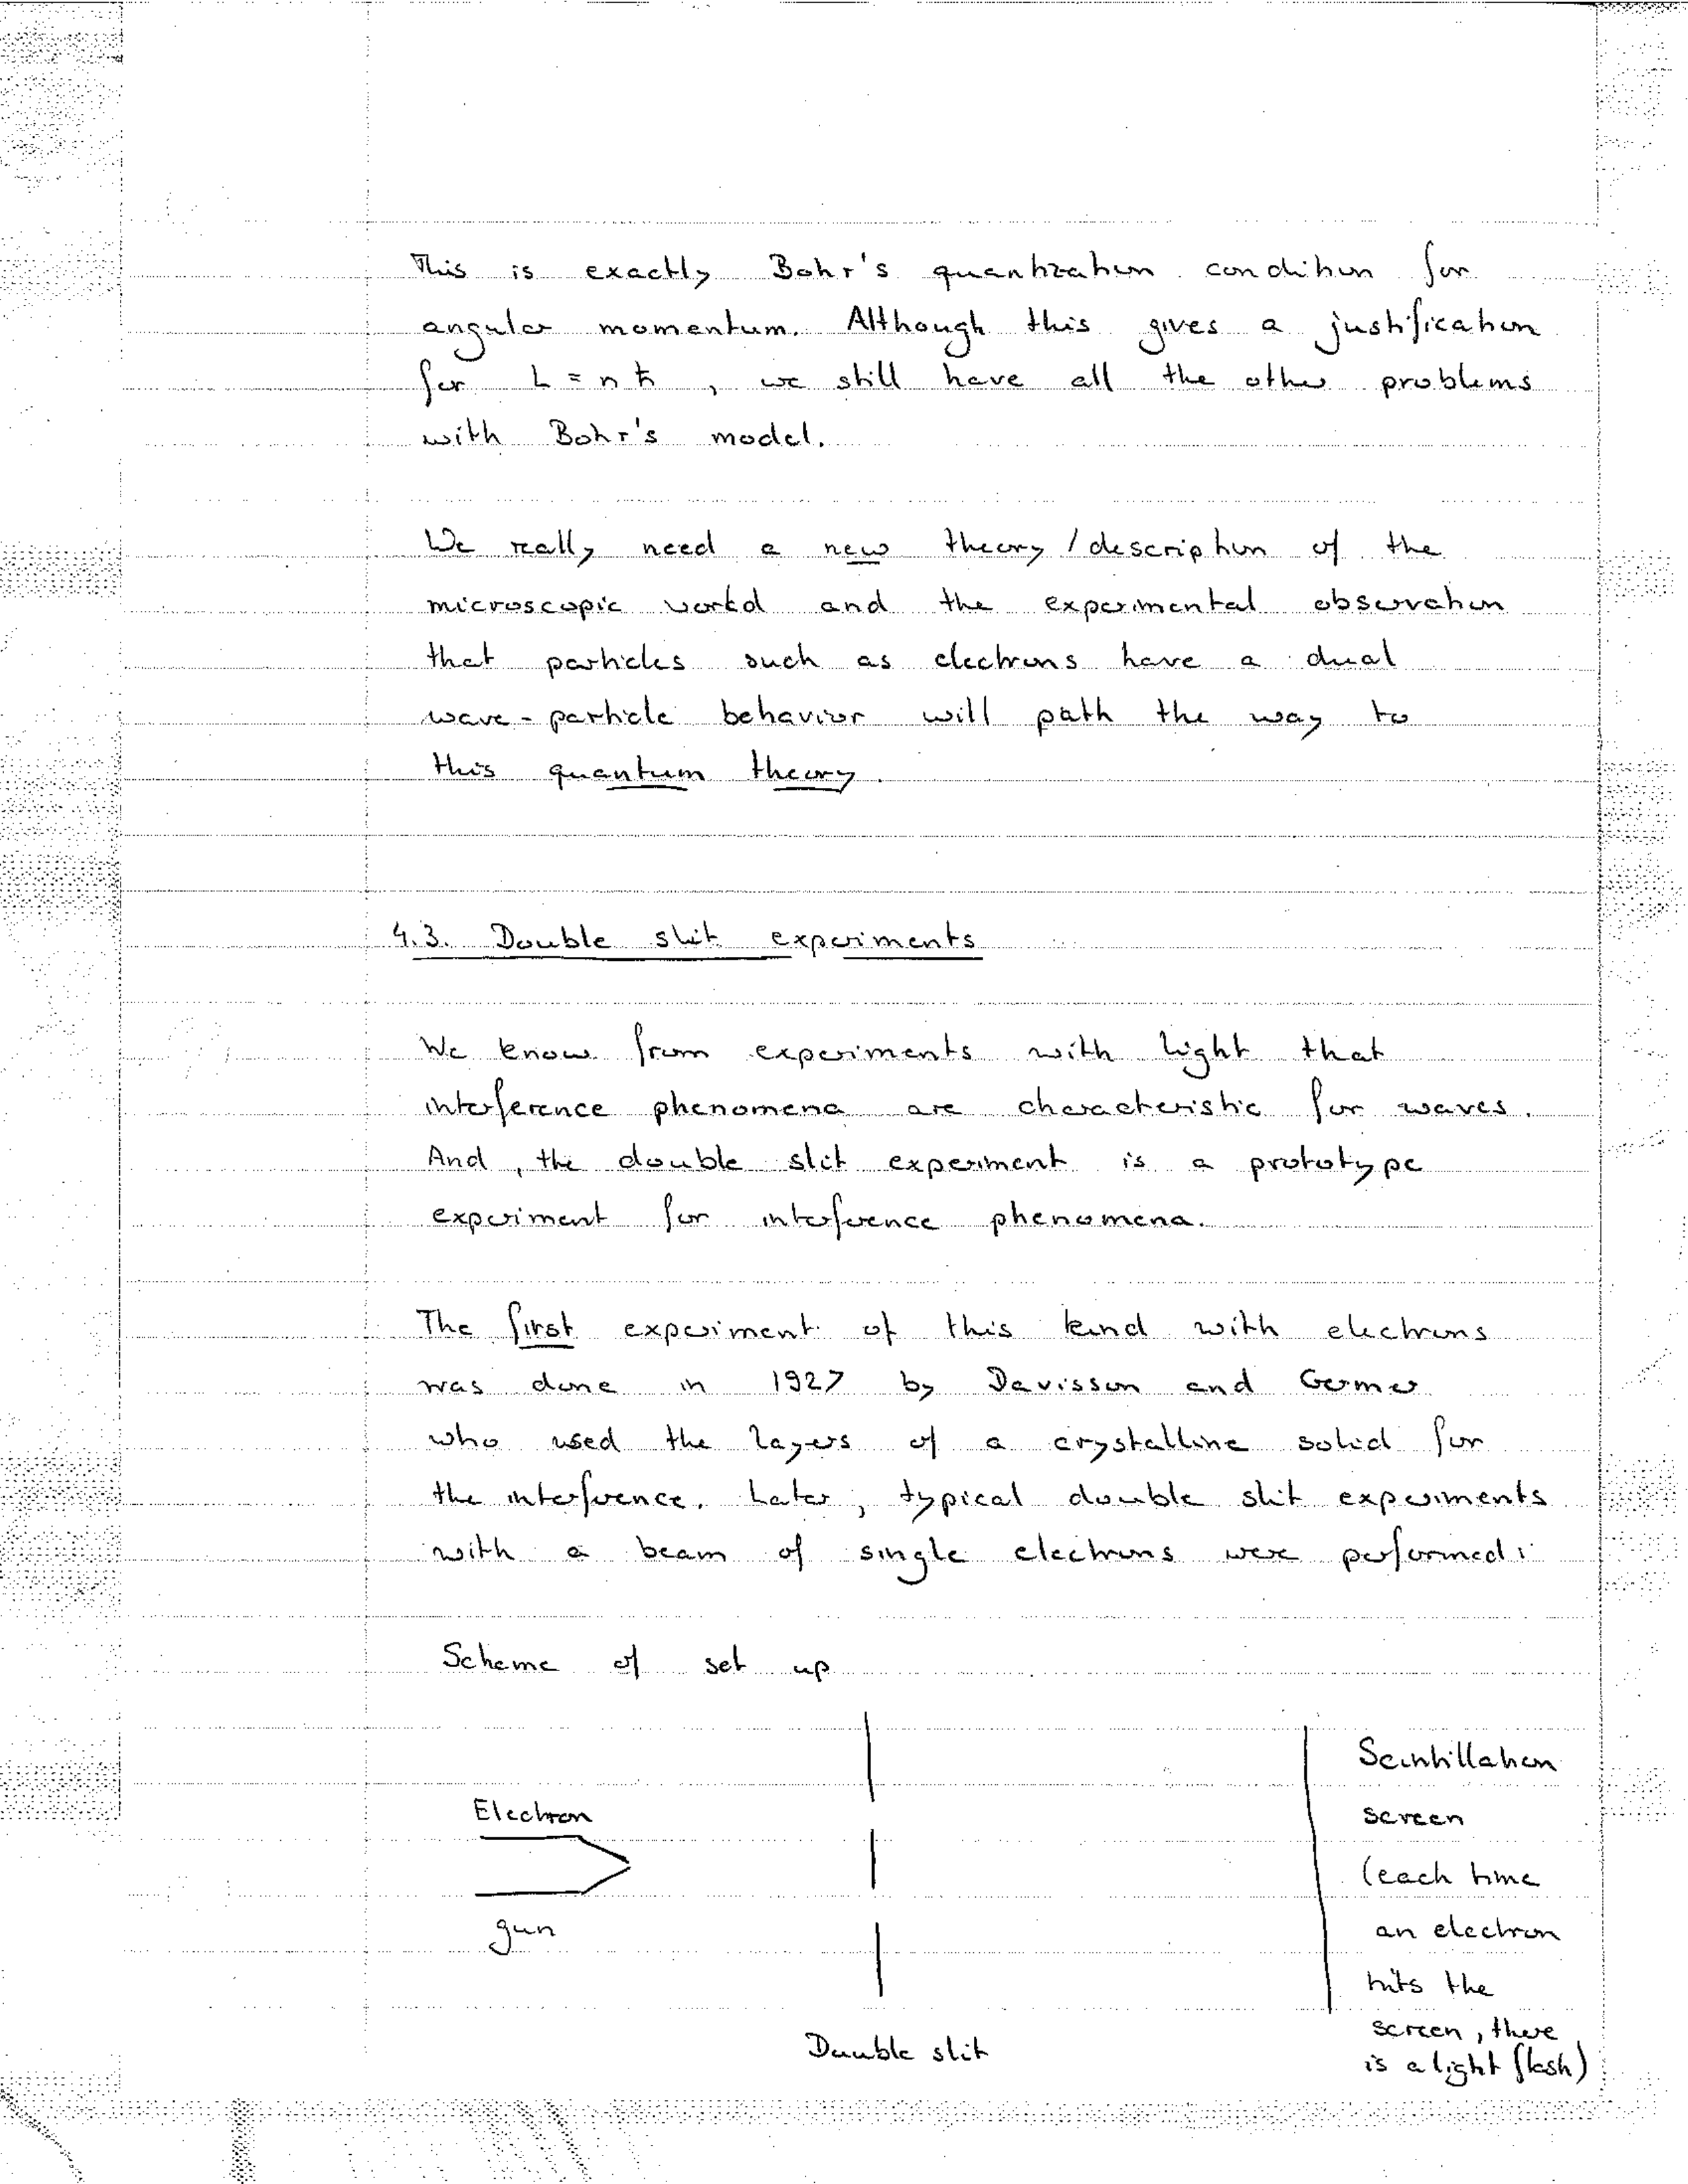 This is exactly Bohr's quantization condition for
angular momentum. Although this gives a justification
for L = n ħ , we still have all the other problems
with Bohr's model.
We really need a new theory / description of the
microscopic world and the experimental observation
that particles such as electrons have a dual
wave - particle behavior will path the way to
this quantum theory.
4.3. Double slit experiments
We know from experiments with light that
interference phenomena are characteristic for waves.
And, the double slit experiment is a prototype
experiment for interference phenomena.
The first experiment of this kind with electrons
was done in 1927 by Davisson and Germer
who used the layers of a crystalline solid for
the interference. Later, typical double slit experiments
with a beam of single electrons were performed:
Scheme of set up
Electron
gun
Double slit
Scintillation
screen
(each time
an electron
hits the
screen, there
is a light flash)